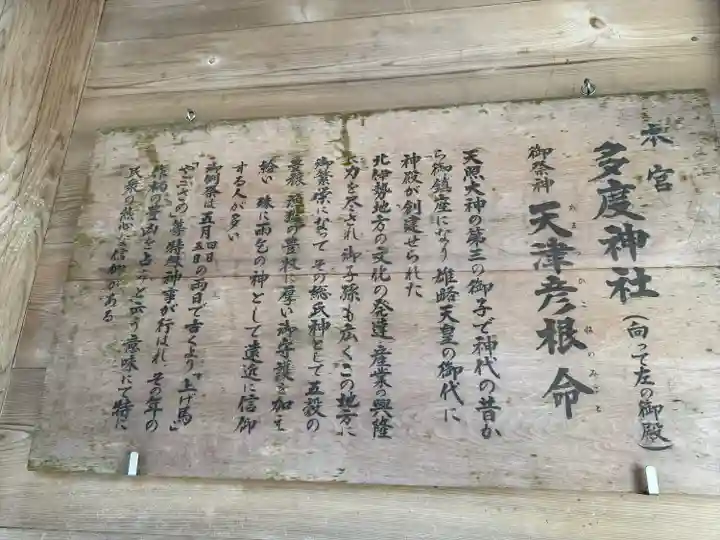 本宮
多度神社(向って左の御殿)
御祭神 天津彦根命
あまつひこねのみこと
天照大神の第三の御子で神代の昔か
ら御鎮座になり雄略天皇の御代に
神殿が創建せられた
北伊勢地方の文化の発達産業の興隆
に力を尽され御子孫も広くこの地方に
御繁栄になって その総氏神として五穀の
豊穣 の豊牧に厚い御守護を加え
給い 殊に雨乞の神として遠近に信仰
する人が多い
御例祭は五月四日五日の両日で古くより「上げ馬」
「やぶさめ」等特殊神事が行はれ その年の
作柄の豊凶を占うと云う意味にて特に
民衆の熱心な信仰がある